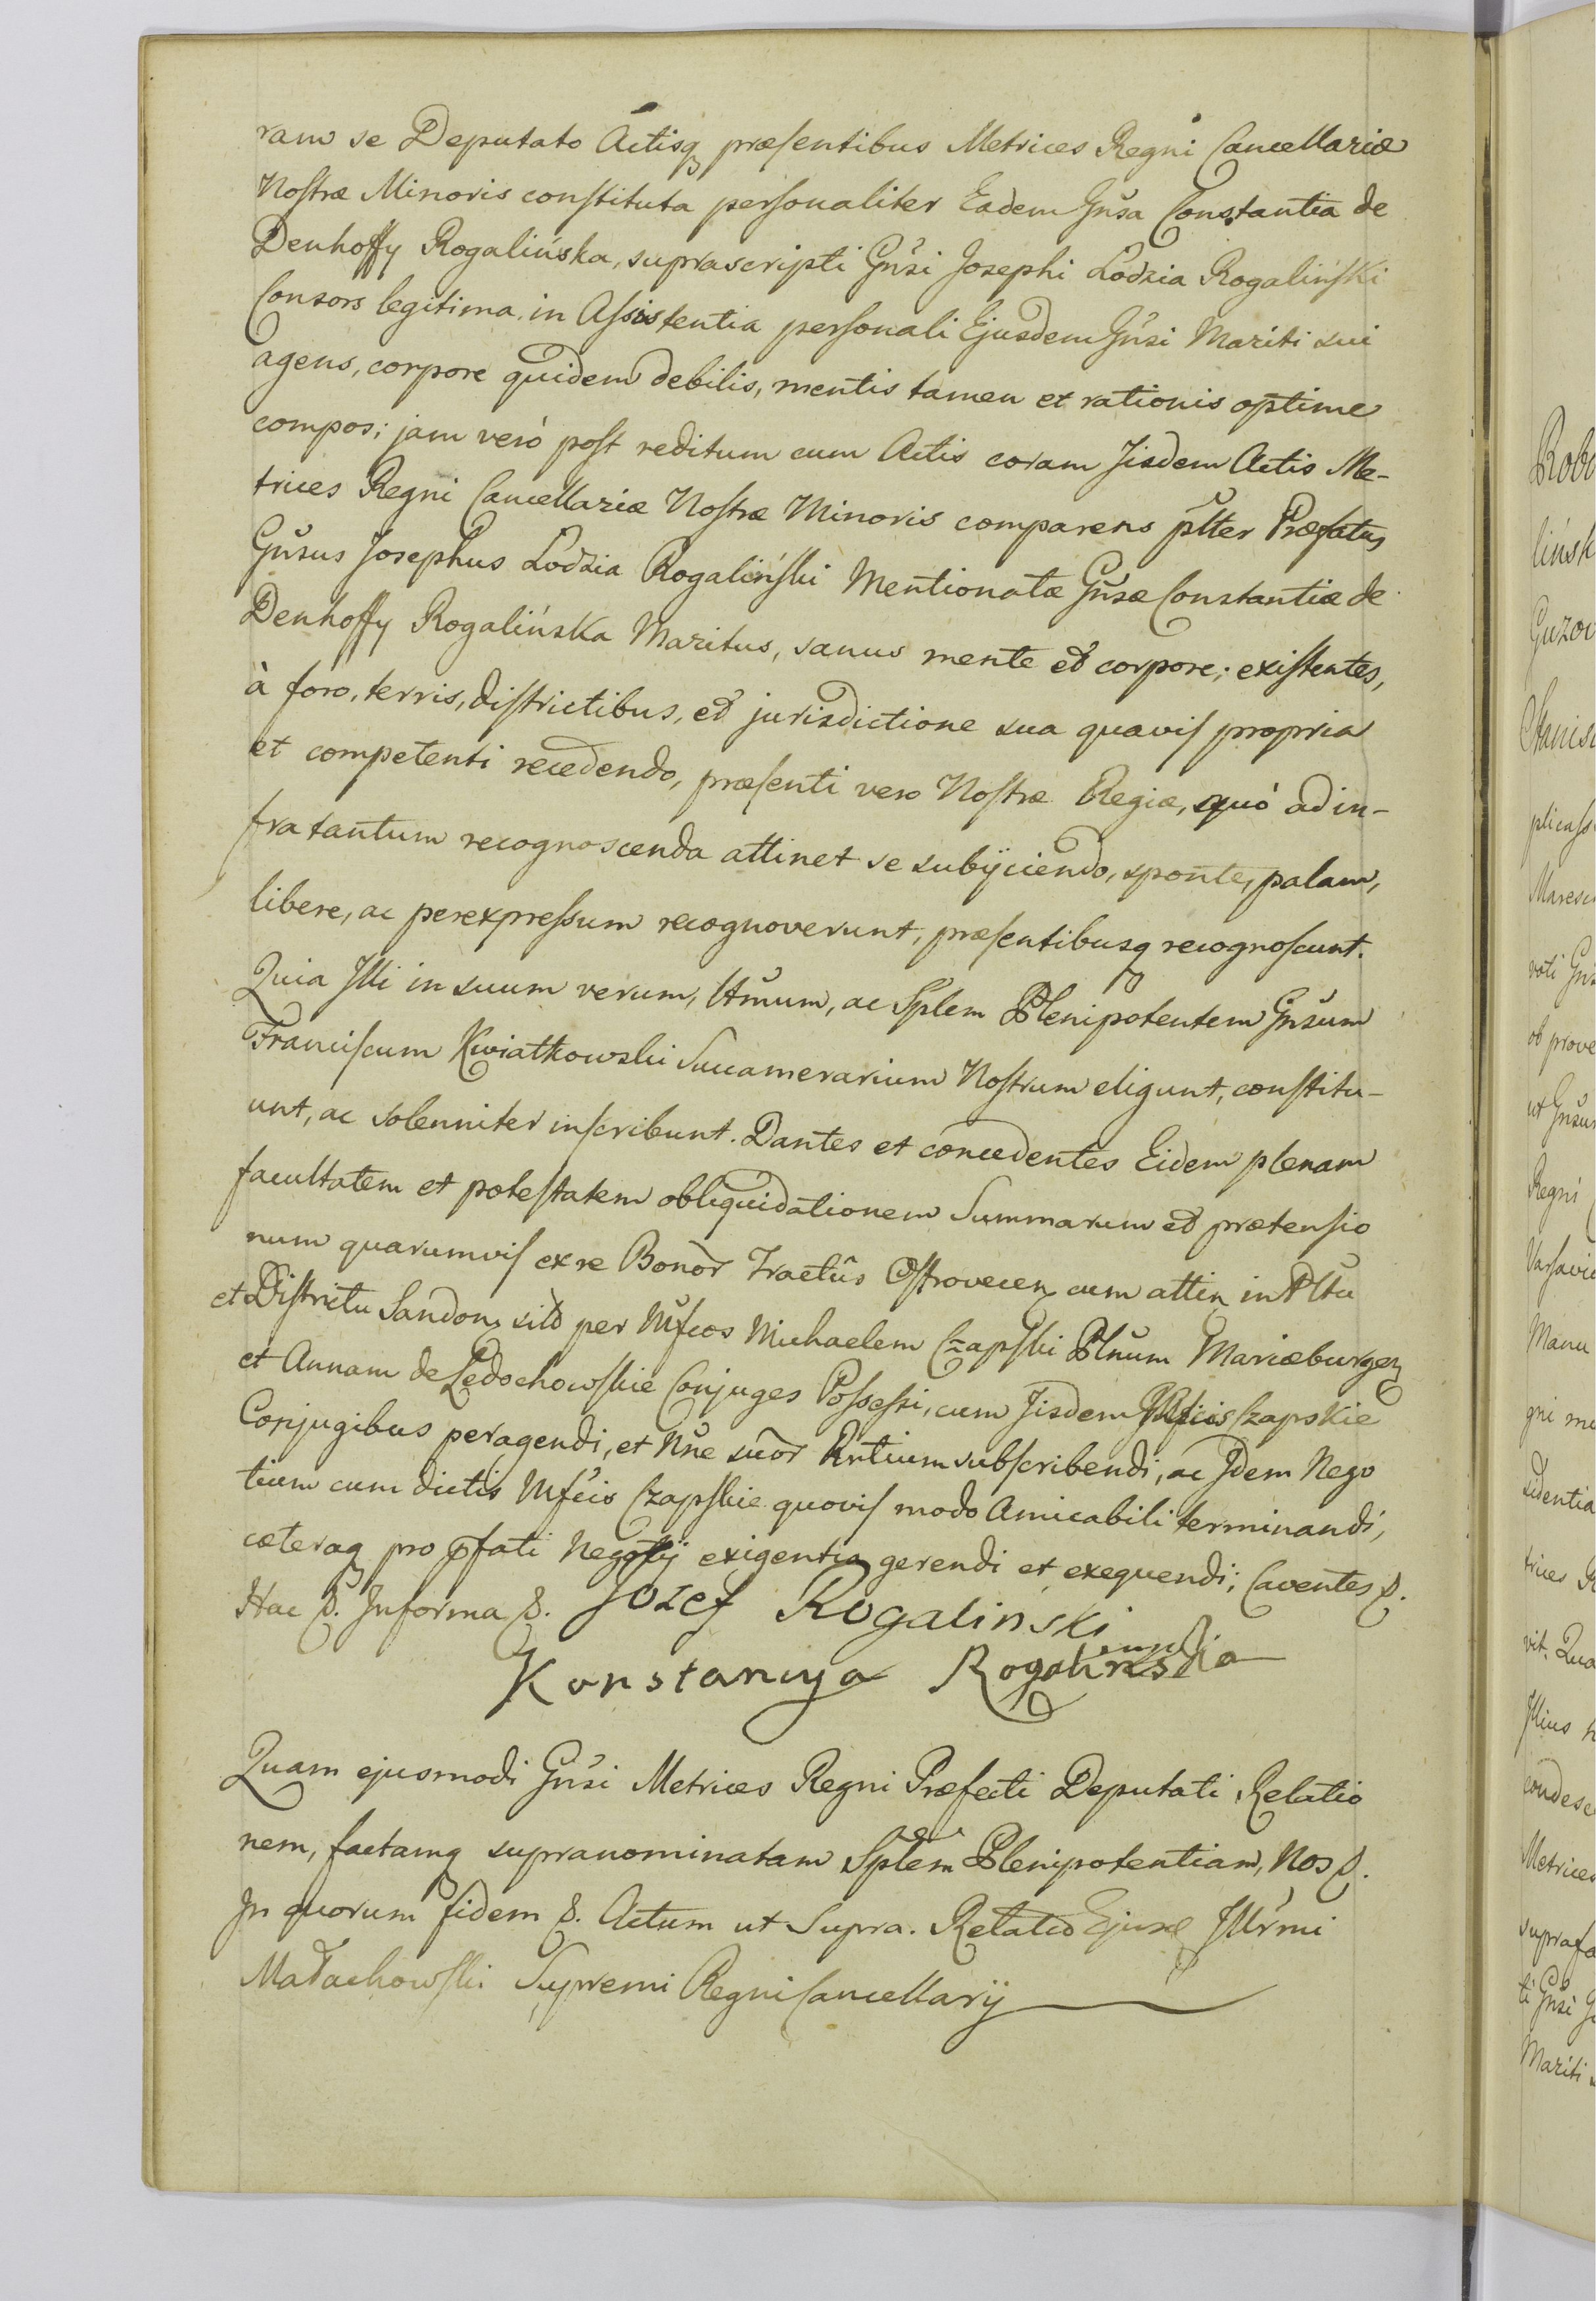 ram se Deputato Actisq præsentibus Metrices Regni Cancellariæ
Nostræ Minoris constituta personaliter Eadem Gnsa Constantia de
Denhoffy Rogalińska, suprascripti Gnsi Josephi Lodzia Rogaliński
Consors legitima in Assistentia personali Ejusdem Gnsi Mariti sui
agens, corpore quidem debilis, mentis tamen et rationis optime
compos; jam verò post reditum cum Actis coram Jisdem Actis Me-
trices Regni Cancellariæ Nostræ Minoris comparens plter Præfatus
Gnsus Josephus Lodzia Rogaliński Mentionatæ Gnsæ Constantiæ de
Denhoffy Rogalińska Maritus, sanus mente et corpore; existentes,
à foro, terris, districtibus, et jurisdictione sua quavis propria
et competenti recedendo, præsenti vero Nostræ Regiæ, quó ad in-
fra tantum recognoscenda attinet se subijciendo, sponte, palam,
libere, ac perexpressum recognoverunt, præsentibusq recognoscunt.
Quia Illi in suum verum, Ltmum, ac Splem Plenipotentem Gnsum
Franciscum Kwiatkowski Succamerarium Nostrum eligunt, constitu-
unt, ac solenniter inscribunt. Dantes et concedentes Eidem plenam
facultatem et potestatem obliquidationem Summarum et prætensio
num quarumvis ex re Bonor Tractûs Ostrovecen cum attin in Pltu
et Districtu Sandom sito per Mfcos Michaelem Czapski Pltnum Mariæburgen
et Annam de Ledochowskie Conjuges Possessi, cum Jisdem Mfcis Czapskie
Conjugibus peragendi, et Nne suor Prtium subscribendi, ac Idem Nego
tium cum dictis Mfcis Czapskie quovis modo Amicabili terminandi,
cæteraq pro pfati Negotij exigentia gerendi et exequendi; Caventes &.
Hac &. Informa &. Jozef Rogalinski
Konstancya Rogalinska
Quam ejusmodi Gnsi Metrices Regni Præfecti Deputati Relatio
nem, factamq supranominatam Splem Plenipotentiam, Nos &.
In quorum fidem &. Actum ut Supra. Relatio Ejusd Illrmi
Małachowski Supremi Regni Cancellarij